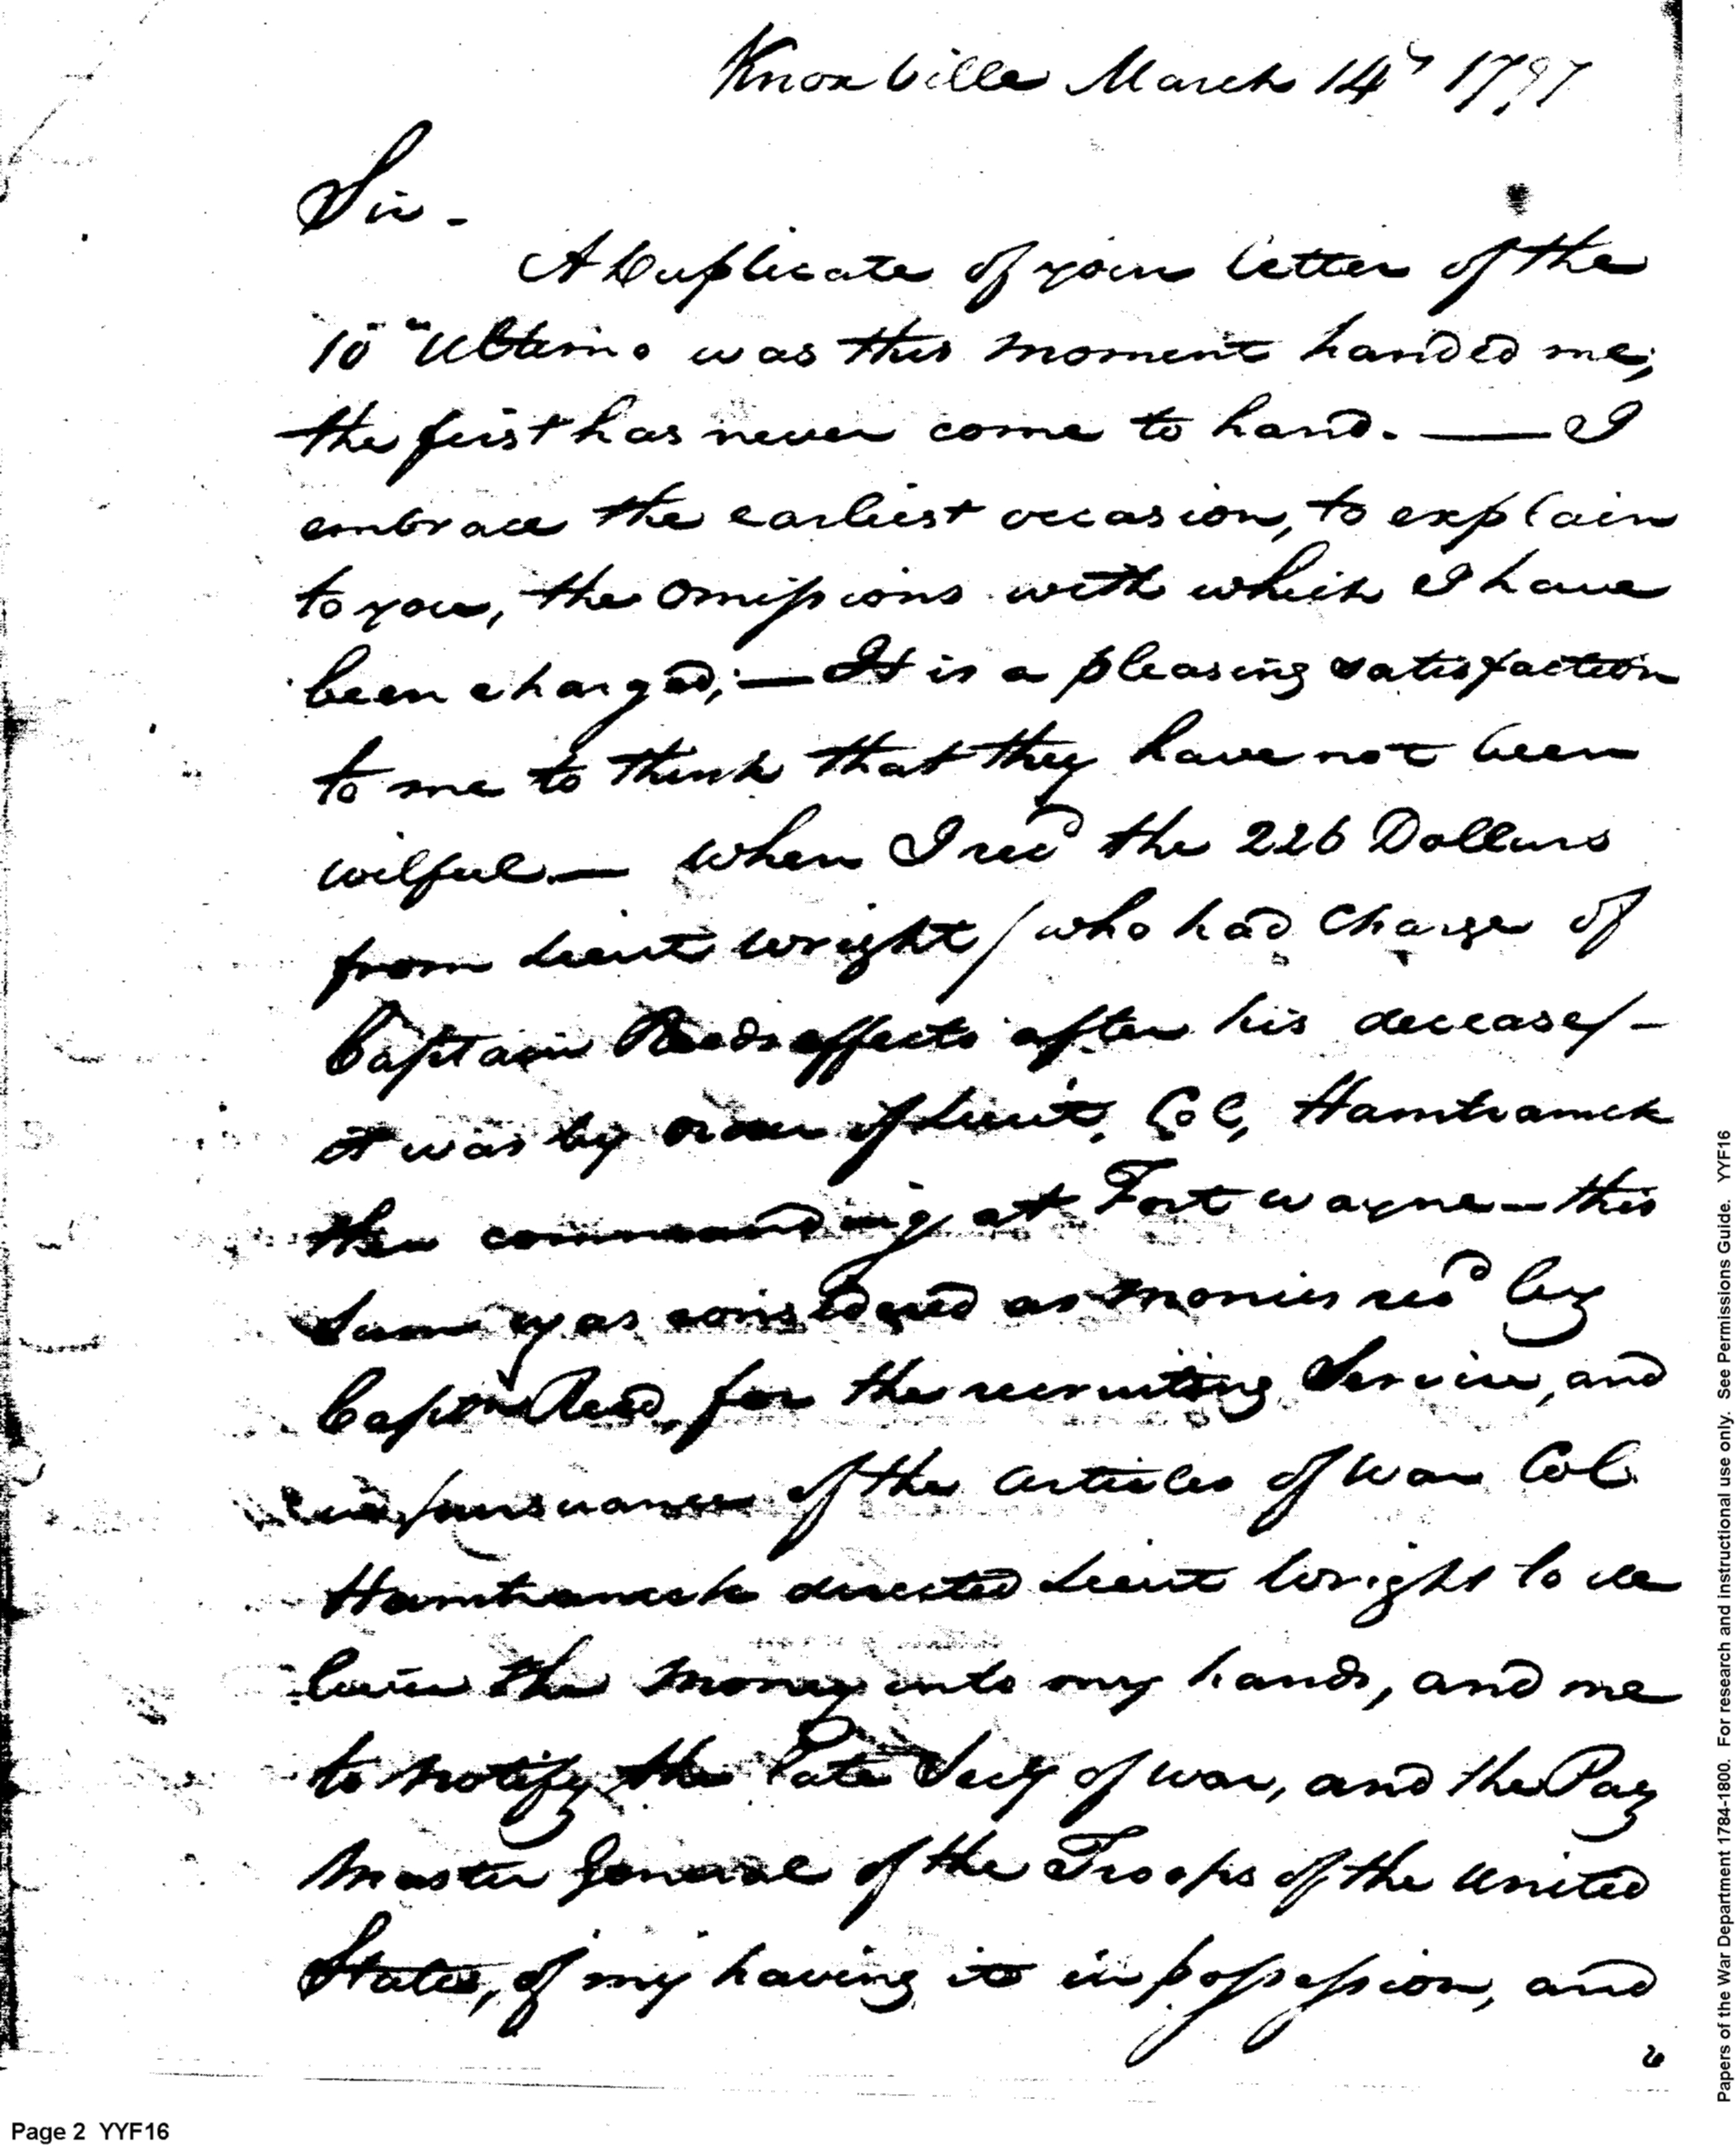 Knoxville March 14th 1797
Sir -
A Duplicate of your letter of the
10th Ultimo was this moment handed me;
the first has never come to hand. — I
embrace the earliest occasion, to explain
to you, the Omissions with which I have
been charged; — It is a pleasing satisfaction
to me to think that they have not been
wilful. — when I recd the 226 Dollars
from Lieut Wright / who had charge of
Captain Reeds effects after his decease / -
it was by order of Lieut. Col, Hamtramck
then commanding at Fort Wayne — this
Sum was considered as monies recd by
Captn Reed, for the recruiting Service, and
in pursuance of the articles of War Col
Hamtramck directed Lieut Wright to de
liver the money into my hands, and me
to notify the late Secy of War, and the Pay
Master General of the Troops of the United
States, of my having it in possession, and
Page 2 YYF16
Papers of the War Department 1784-1800. For research and instructional use only. See Permissions Guide. YYF16